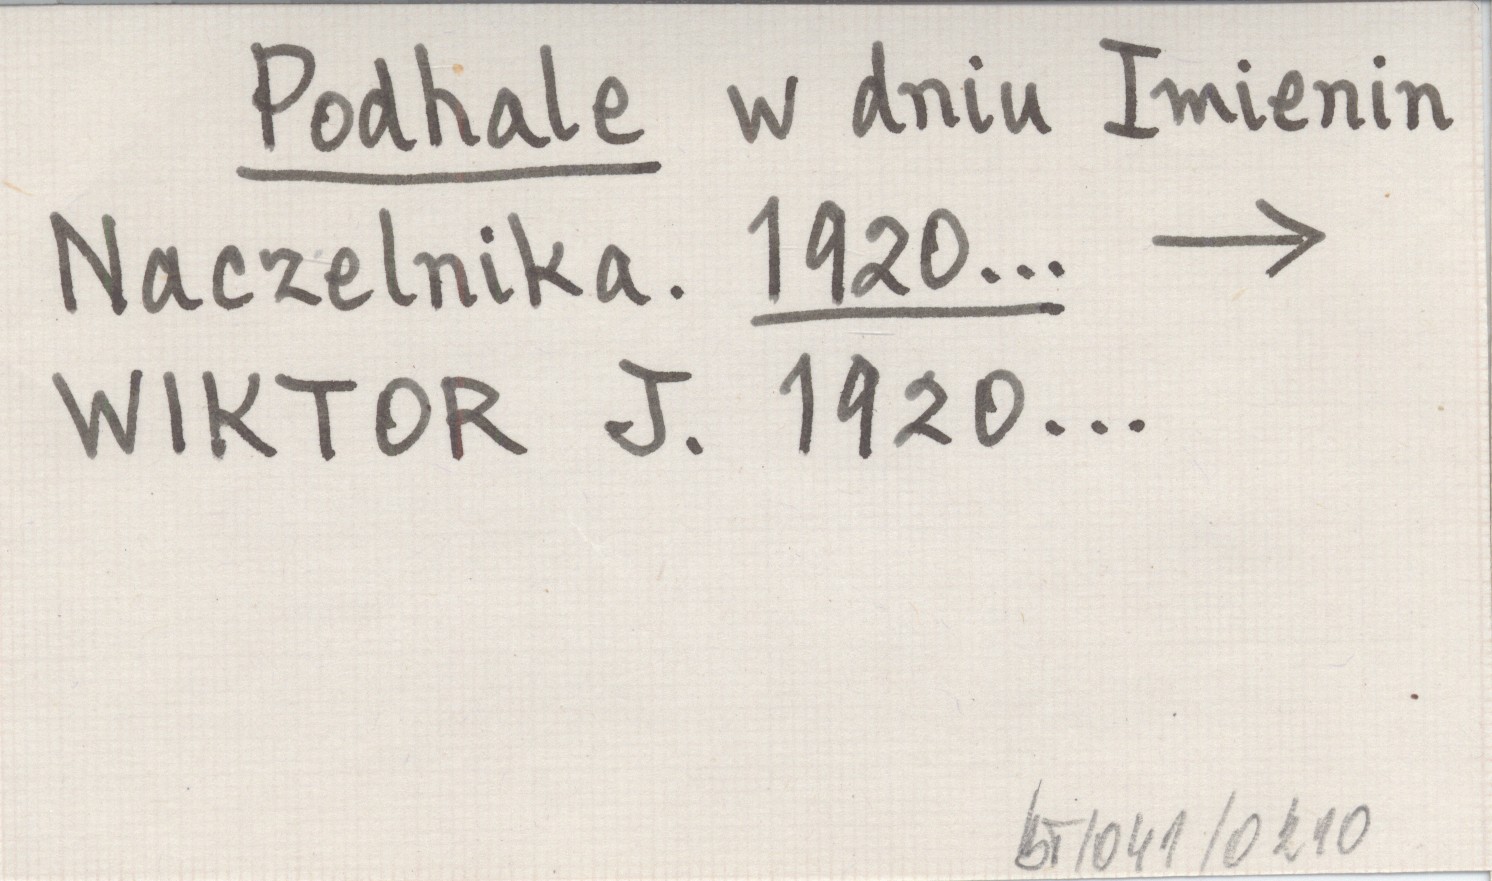 Podhale w dniu Imienin
Naczelnika. 1920... →
WIKTOR J. 1920...
/041/0210